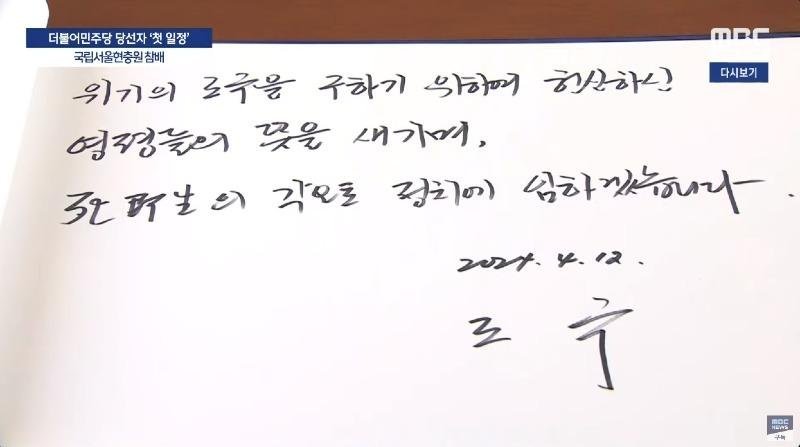 더불어민주당 당선자 '첫 일정'
국립서울현충원 참배
MBC
다시보기
위기의 조국을 구하기 위하여 헌신하신
영령들의 뜻을 새기며,
의 각오로 정치에 임하겠습니다.
2024. 4. 12.
MBC NEWS
구독